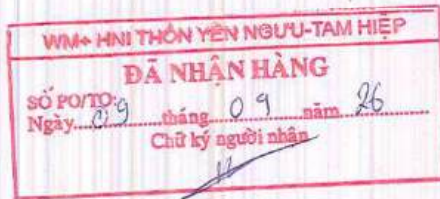 WM+ HNI THÔN YÊN NGƯU-TAM HIỆP
ĐÃ NHẬN HÀNG
SỐ PO/TO:
Ngày 09 tháng 09 năm 26
Chữ ký người nhận